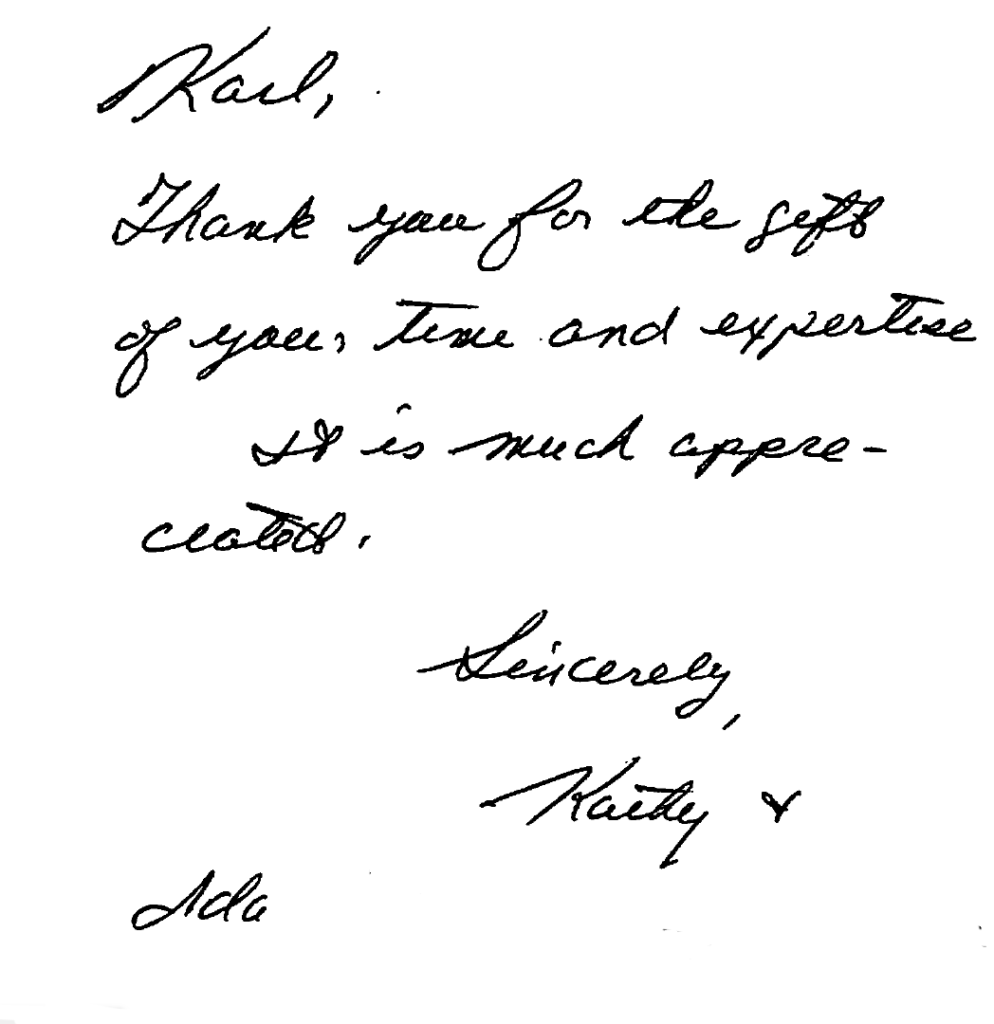 Karl,
Thank you for the gift
of your time and expertise
It is much appre-
ciated.
Sincerely,
Kathy &
Ada